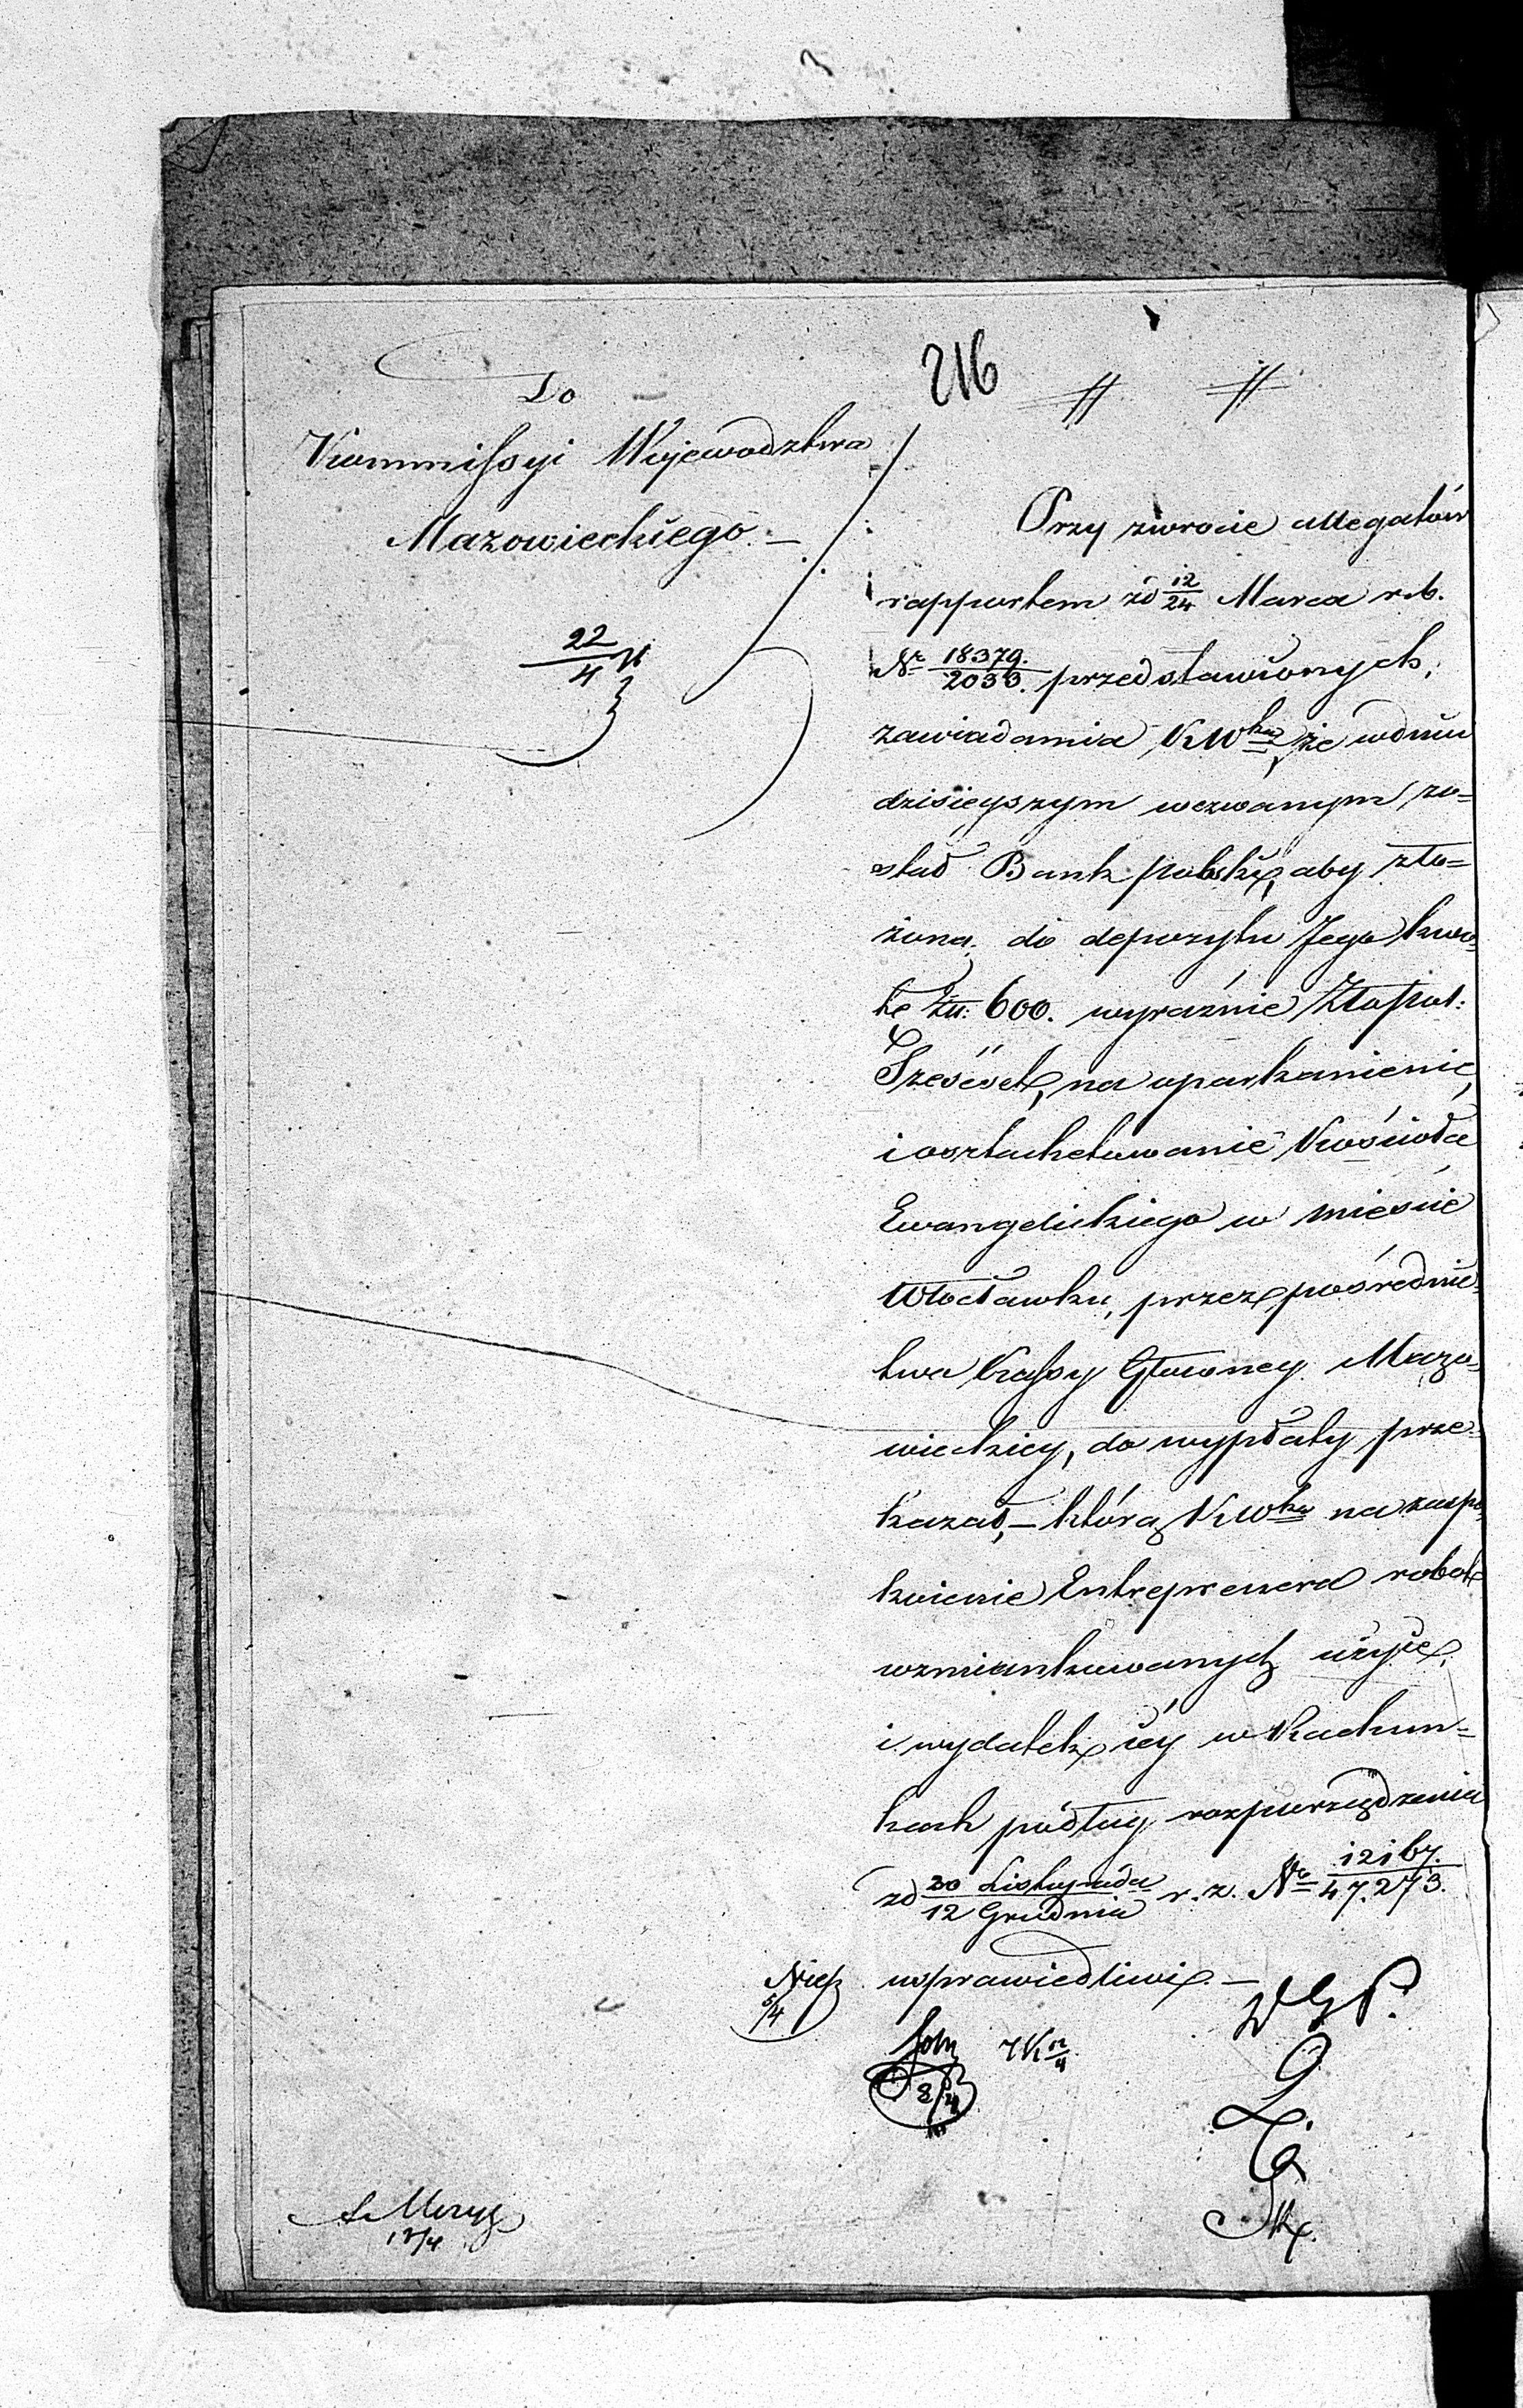 216
Do
Kommissyi Wojewodztwa
Mazowieckiego. —
22/4
Przy zwrocie allegatów
rapportem zd 12/24 Marca r. b.
Nr 18379./2033. przedstawionych,
zawiadamia KWką, że w dniu
dzisieyszym wezwanym zo=
stał Bank polski, aby zło=
żoną do depozytu Jego kwo=
tę Złł: 600. wyraźnie Złopol:
Sześćset, na oparkanienie
i osztachetowanie Kościoła
Ewangelickiego w mieście
Włocławku, przez pośrednic=
twa Kassy Głowney Mazo=
wieckiey, do wypłaty prze=
kazał, — którą KWka na zaspo=
koienie Entreprenera robot
wzmiankowanych użyie,
i wydatek iéy w Rachun=
kach podług rozporządzenia
zd 30 Listopada/12 Grudnia r. z. Nr 12167./47.273.
usprawiedliwi. —
5/4
8/4
12/4